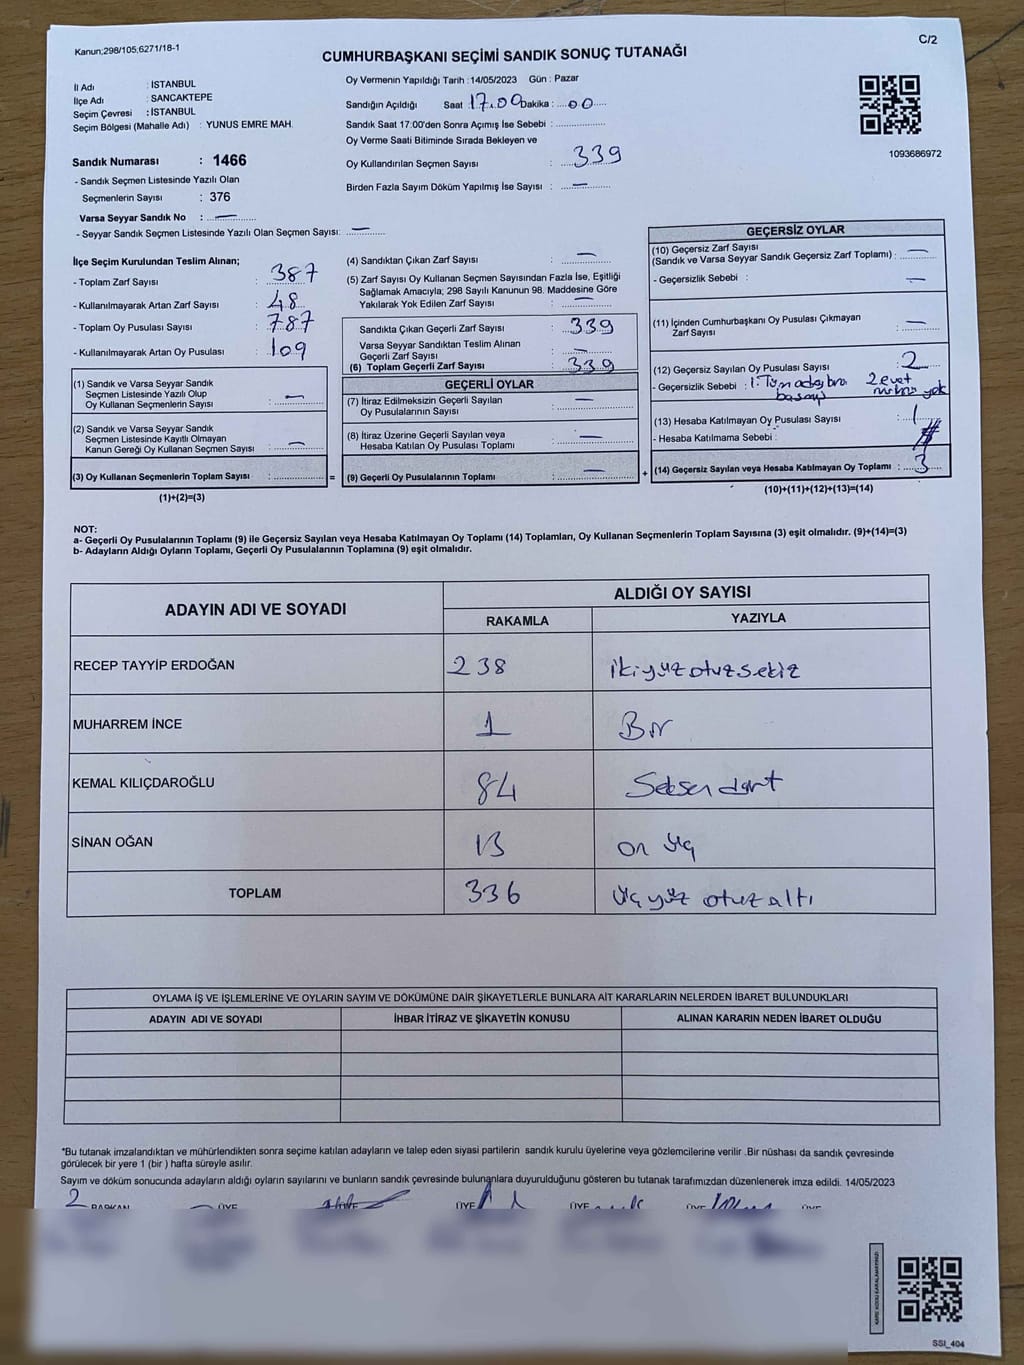 Kanun;298/105;6271/18-1
C/2
CUMHURBAŞKANI SEÇİMİ SANDIK SONUÇ TUTANAĞI
İl Adı : İSTANBUL
İlçe Adı : SANCAKTEPE
Seçim Çevresi : İSTANBUL
Seçim Bölgesi (Mahalle Adı) : YUNUS EMRE MAH.
Oy Vermenin Yapıldığı Tarih :14/05/2023 Gün : Pazar
Sandığın Açıldığı Saat 17.00 Dakika : 00
Sandık Saat 17:00'den Sonra Açımış İse Sebebi :
Oy Verme Saati Bitiminde Sırada Bekleyen ve
Oy Kullandırılan Seçmen Sayısı : 339
Birden Fazla Sayım Döküm Yapılmış İse Sayısı : —
1093686972
Sandık Numarası : 1466
- Sandık Seçmen Listesinde Yazılı Olan
Seçmenlerin Sayısı : 376
Varsa Seyyar Sandık No : —
- Seyyar Sandık Seçmen Listesinde Yazılı Olan Seçmen Sayısı: —
İlçe Seçim Kurulundan Teslim Alınan;
- Toplam Zarf Sayısı : 387
- Kullanılmayarak Artan Zarf Sayısı : 48
- Toplam Oy Pusulası Sayısı : 787
- Kullanılmayarak Artan Oy Pusulası : 109
(1) Sandık ve Varsa Seyyar Sandık
Seçmen Listesinde Yazılı Olup
Oy Kullanan Seçmenlerin Sayısı : —
(2) Sandık ve Varsa Seyyar Sandık
Seçmen Listesinde Kayıtlı Olmayan
Kanun Gereği Oy Kullanan Seçmen Sayısı : —
(3) Oy Kullanan Seçmenlerin Toplam Sayısı : =
(1)+(2)=(3)
(4) Sandıktan Çıkan Zarf Sayısı : —
(5) Zarf Sayısı Oy Kullanan Seçmen Sayısından Fazla İse, Eşitliği
Sağlamak Amacıyla; 298 Sayılı Kanunun 98. Maddesine Göre
Yakılarak Yok Edilen Zarf Sayısı : —
Sandıkta Çıkan Geçerli Zarf Sayısı : 339
Varsa Seyyar Sandıktan Teslim Alınan
Geçerli Zarf Sayısı : —
(6) Toplam Geçerli Zarf Sayısı : 339
GEÇERLİ OYLAR
(7) İtiraz Edilmeksizin Geçerli Sayılan
Oy Pusulalarının Sayısı : —
(8) İtiraz Üzerine Geçerli Sayılan veya
Hesaba Katılan Oy Pusulası Toplamı : —
(9) Geçerli Oy Pusulalarının Toplamı : — +
GEÇERSİZ OYLAR
(10) Geçersiz Zarf Sayısı
(Sandık ve Varsa Seyyar Sandık Geçersiz Zarf Toplamı) : —
- Geçersizlik Sebebi : —
(11) İçinden Cumhurbaşkanı Oy Pusulası Çıkmayan
Zarf Sayısı : —
(12) Geçersiz Sayılan Oy Pusulası Sayısı : 2
- Geçersizlik Sebebi : 1. Tüm 2 evet
yok
(13) Hesaba Katılmayan Oy Pusulası Sayısı : 1
- Hesaba Katılmama Sebebi :
(14) Geçersiz Sayılan veya Hesaba Katılmayan Oy Toplamı : 3
(10)+(11)+(12)+(13)=(14)
NOT:
a- Geçerli Oy Pusulalarının Toplamı (9) ile Geçersiz Sayılan veya Hesaba Katılmayan Oy Toplamı (14) Toplamları, Oy Kullanan Seçmenlerin Toplam Sayısına (3) eşit olmalıdır. (9)+(14)=(3)
b- Adayların Aldığı Oyların Toplamı, Geçerli Oy Pusulalarının Toplamına (9) eşit olmalıdır.
ADAYIN ADI VE SOYADI
ALDIĞI OY SAYISI
RAKAMLA YAZIYLA
RECEP TAYYİP ERDOĞAN 238 ikiyüzotuzsekiz
MUHARREM İNCE 1 Bir
KEMAL KILIÇDAROĞLU 84 Seksen dört
SİNAN OĞAN 13 on üç
TOPLAM 336 üçyüz otuz altı
OYLAMA İŞ VE İŞLEMLERİNE VE OYLARIN SAYIM VE DÖKÜMÜNE DAİR ŞİKAYETLERLE BUNLARA AİT KARARLARIN NELERDEN İBARET BULUNDUKLARI
ADAYIN ADI VE SOYADI İHBAR İTİRAZ VE ŞİKAYETİN KONUSU ALINAN KARARIN NEDEN İBARET OLDUĞU
*Bu tutanak imzalandıktan ve mühürlendikten sonra seçime katılan adayların ve talep eden siyasi partilerin sandık kurulu üyelerine veya gözlemcilerine verilir .Bir nüshası da sandık çevresinde
görülecek bir yere 1 (bir ) hafta süreyle asılır.
Sayım ve döküm sonucunda adayların aldığı oyların sayılarını ve bunların sandık çevresinde bulunanlara duyurulduğunu gösteren bu tutanak tarafımızdan düzenlenerek imza edildi. 14/05/2023
BAŞKAN ÜYE ÜYE ÜYE ÜYE ÜYE
KARE KODU KARALAMAYINIZ!
SSI_404